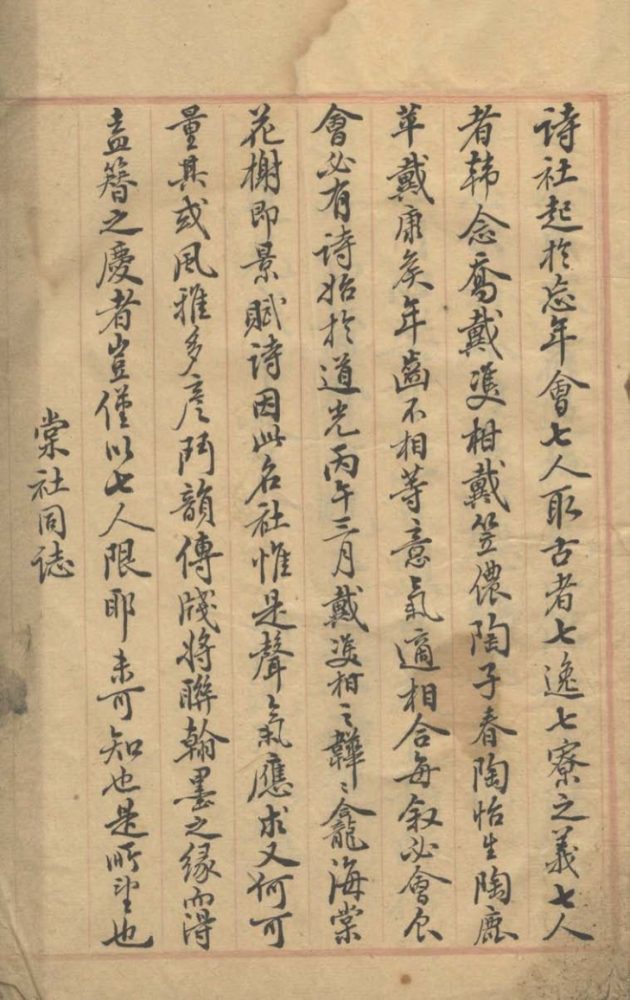 詩社起於忘年會七人取古者七逸七寮之義七人
者韩念喬戴䨇柑戴笠儂陶子春陶怡生陶鹿
苹戴康矦年齒不相等意氣適相合每叙必會
會必有詩始於道光丙午三月戴䨇柑之韡韡龕海棠
花榭即景賦詩因此名社惟是聲氣應求又何可
量其或風雅多彦鬥韻傳牋將聯翰墨之缘而得
盍簪之慶者豈僅以七人限耶未可知也是所望也
棠社同誌